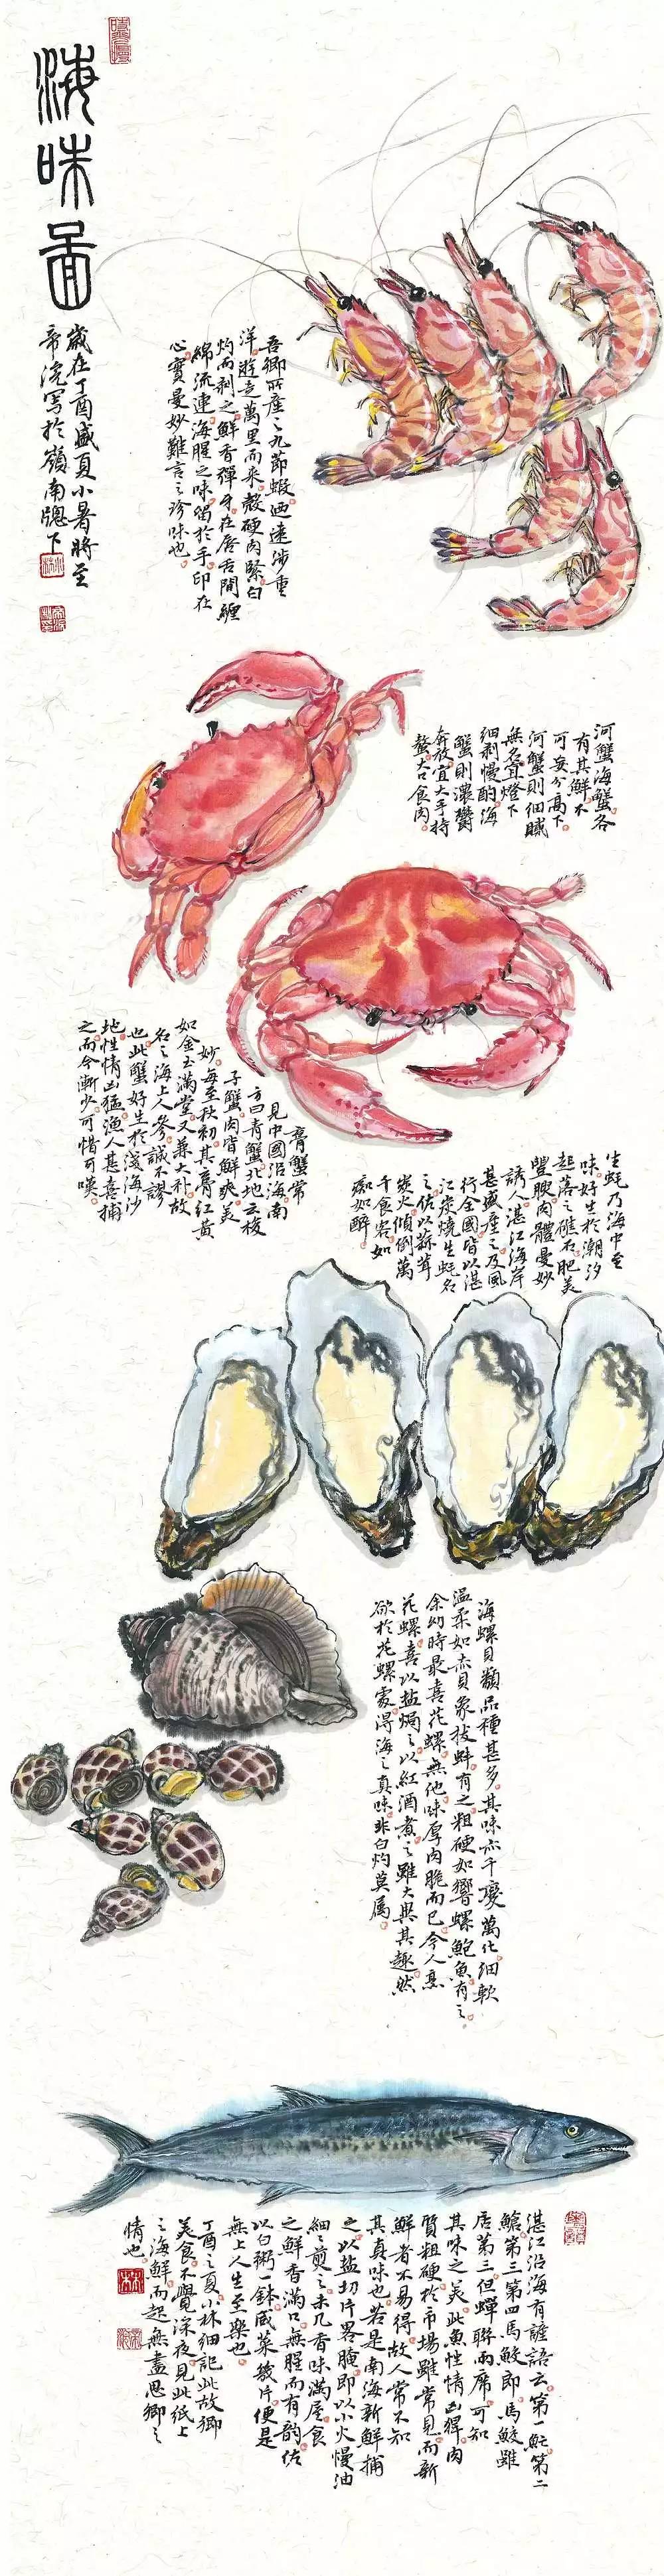 海味圖
歲在丁酉盛夏小暑將至
帝浣写於嶺南牕下
吾鄉所產之九節蝦迺遠涉重
洋遊走萬里而来殼硬肉緊白
灼而剥之鮮香彈牙在唇舌間纏
綿流連海腥之味留於手印在
心實曼妙難言之珍味也
河蟹海蟹各
有其鮮不
可妄分高下
河蟹則细膩
無名宜燈下
细剥慢酌海
蟹則濃鬱
奔放宜大手持
螯大口食肉
膏蟹常
見中國沿海南
方曰青蟹北地云梭
子蟹肉皆鮮爽美
妙每至秋初其膏红黄
如金玉滿堂又兼大补故
名之海上人參誠不謬
也此蟹好生於淺海沙
地性情凶猛漁人甚喜捕
之而今漸少可惜可嘆
生蚝乃海中至
味好生於潮汐
起落之礁石肥美
豐腴肉體曼妙
誘人湛江海岸
甚盛產之及風
行全國皆以湛
江炭燒生蚝名
之佐以蒜茸
炭火傾倒萬
千食客如
痴如醉
海螺貝類品種甚多其味亦千變萬化细軟
温柔如赤貝象拔蚌有之粗硬如響螺鮑魚有之
余幼時最喜花螺無他味厚肉脆而已今人烹
花螺喜以盐焗之以紅酒煮之雖大異其趣然
欲於花螺處得海之真味非白灼莫屬
湛江沿海有諺語云第一魟第二
鯧第三第四馬鮫郎馬鮫雖
居第三但蟬聯兩席可知
其味之美此魚性情凶猂肉
質粗硬於市場雖常見而新
鮮者不易得故人常不知
其真味也若是南海新鮮捕
之以盐切片畧腌即以小火慢油
細細煎之未几香味滿屋食
之鮮香滿口無腥而有韵佐
以白粥一鉢咸菜幾片便是
無上人生至樂也
丁酉之夏小林细記此故鄉
美食不覺深夜見此纸上
之海鮮而起無盡思鄉之
情也